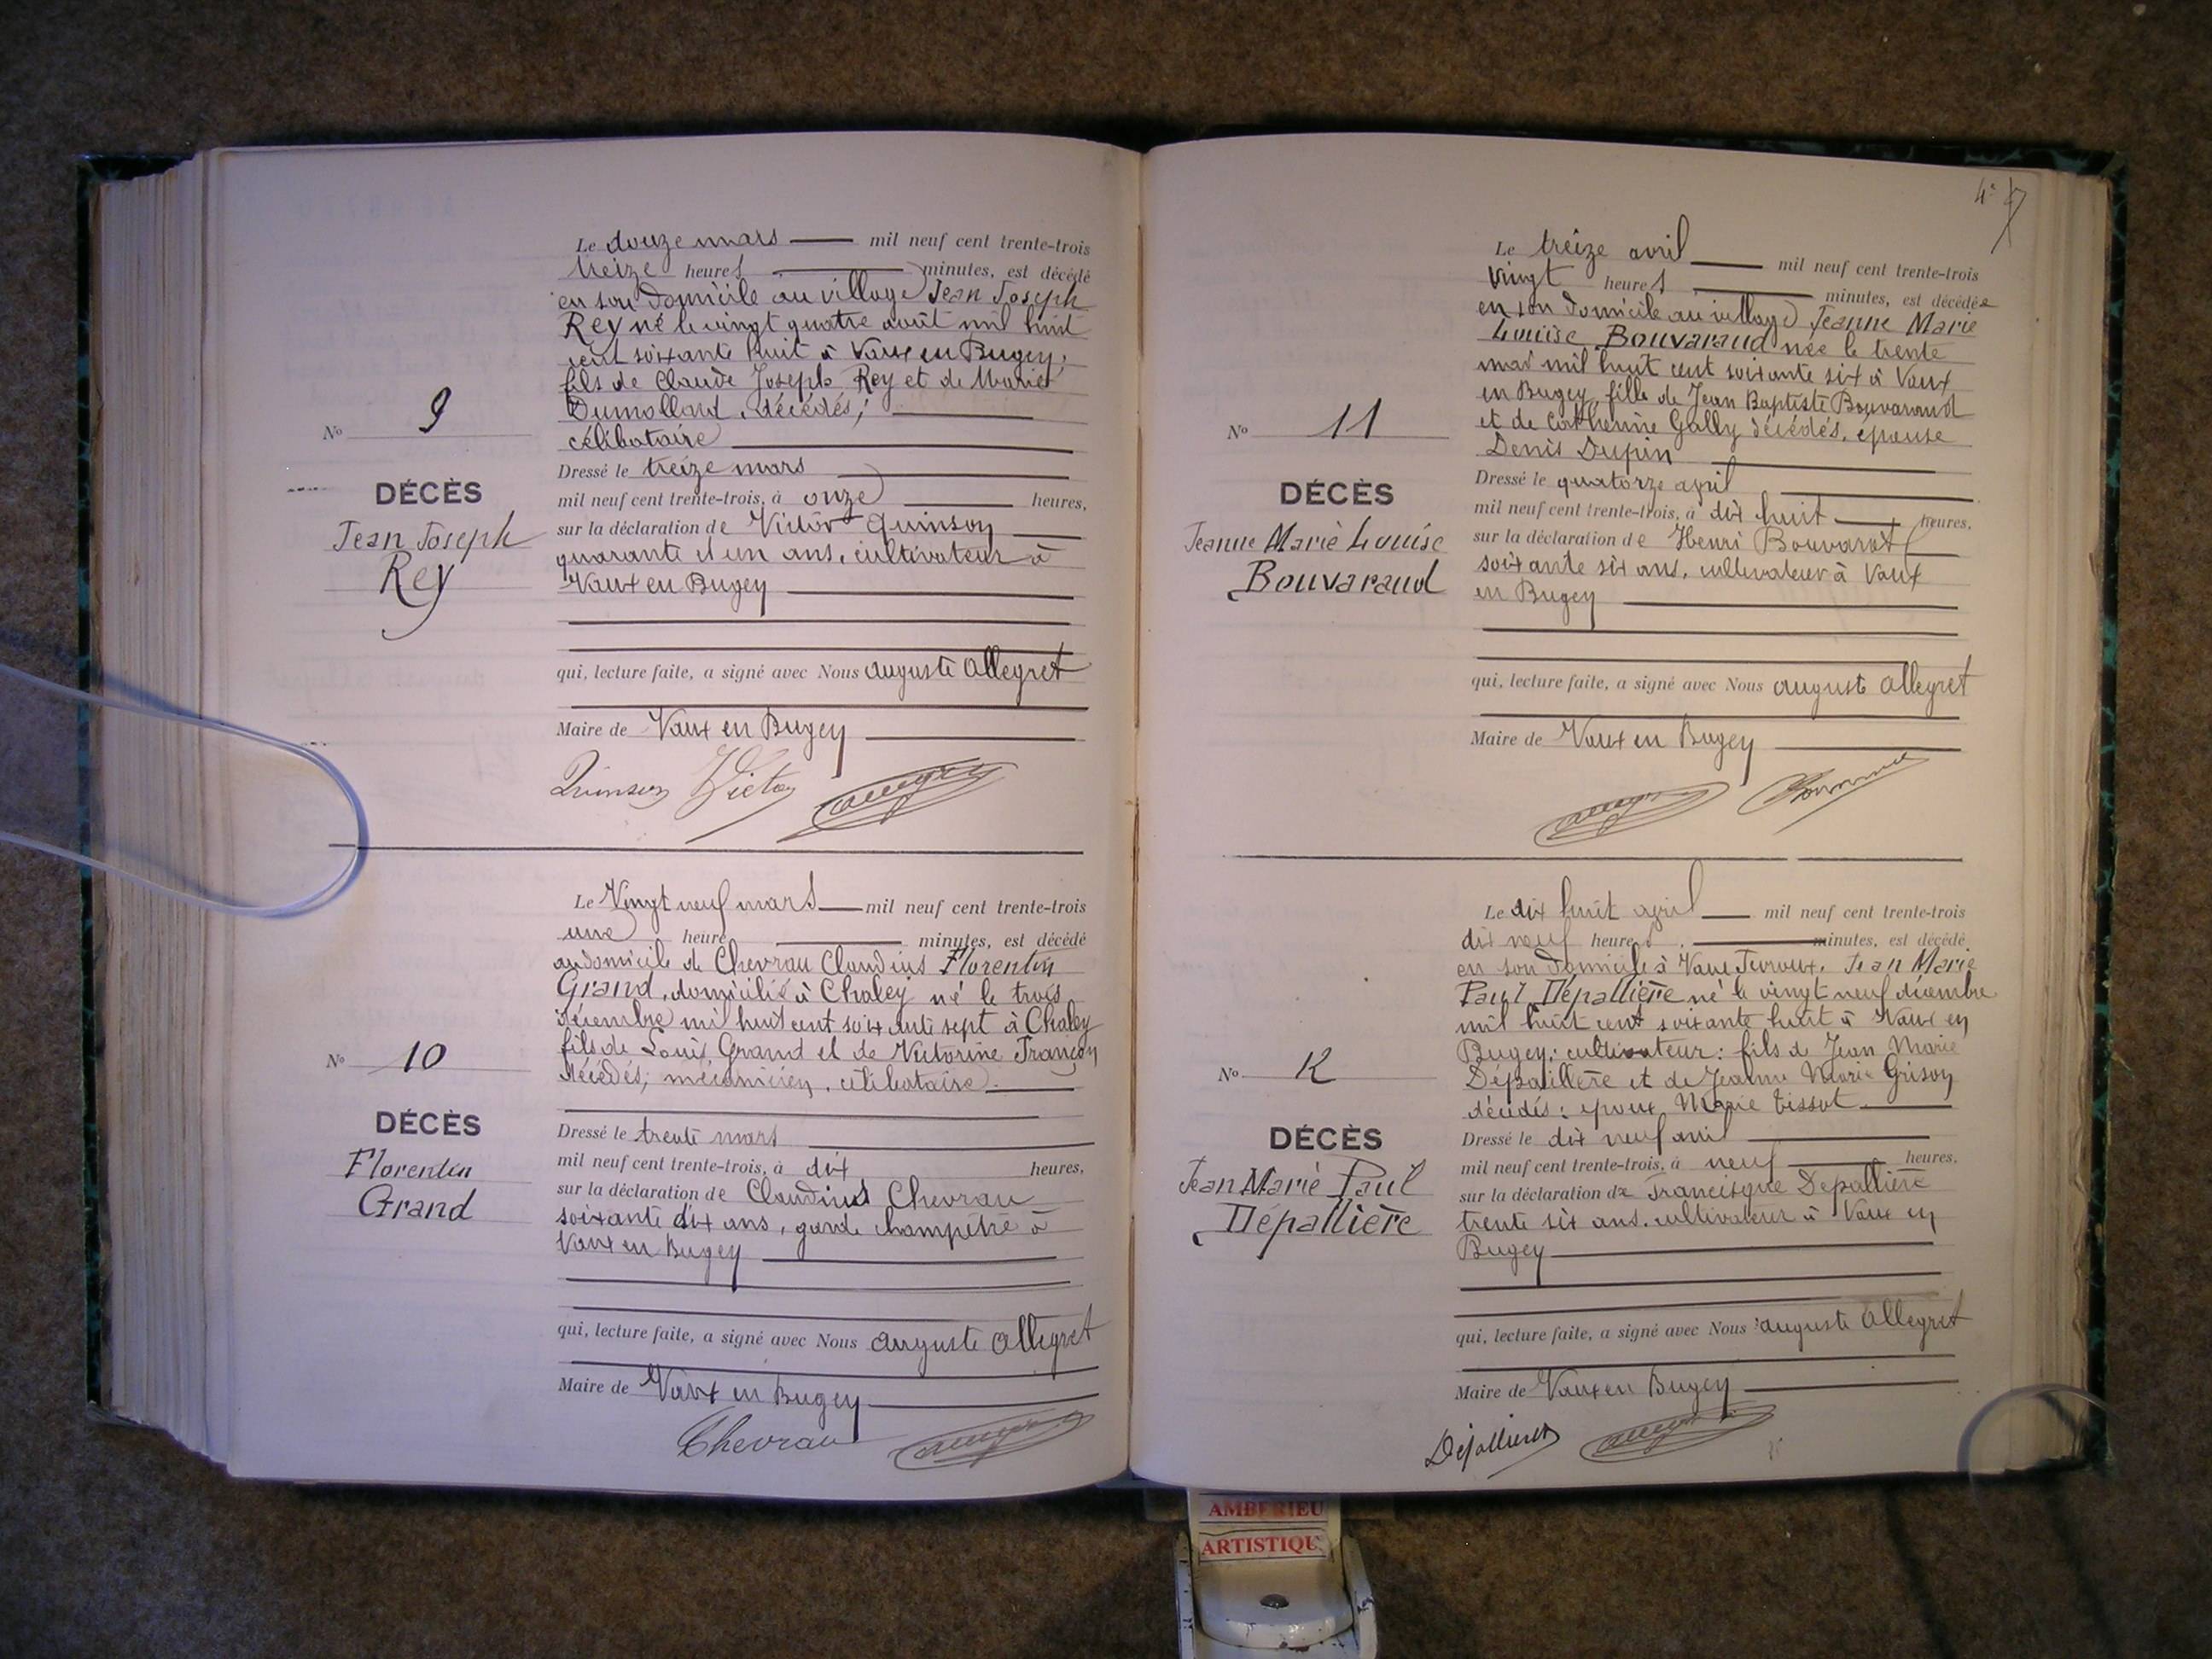 Le douze mars mil neuf cent trente-trois
treize heures minutes, est décédé
en son domicile au village Jean Joseph
Rey né le vingt quatre août mil huit
cent soixante huit à Vaux en Bugey,
fils de Claude Joseph Rey et de Marie
Dumollard, décédés;
célibataire
No 9
DÉCÈS
Jean Joseph
Rey
Dressé le treize mars
mil neuf cent trente-trois, à onze heures,
sur la déclaration de Victor Quinson
quarante et un ans, cultivateur à
Vaux en Bugey
qui, lecture faite, a signé avec Nous auguste allegret
Maire de Vaux en Bugey
Quinson Victor
Le Vingt neuf mars mil neuf cent trente-trois
une heure minutes, est décédé
au domicile de Chevrau Claudius Florentin
Grand, domicilié à Chaley né le trois
décembre mil huit cent soixante sept à Chaley
fils de Louis Grand et de Victorine Françon
décédés; mécanicien, célibataire.
No 10
DÉCÈS
Florentin
Grand
Dressé le trente mars
mil neuf cent trente-trois, à dix heures,
sur la déclaration de Claudius Chevrau
soixante dix ans, garde champêtre à
Vaux en Bugey
qui, lecture faite, a signé avec Nous auguste allegret
Maire de Vaux en Bugey
Chevrau
4e
Le treize avril mil neuf cent trente-trois
Vingt heures minutes, est décédée
en son domicile au village Jeanne Marie
Louise Bouvaraud née le trente
mai mil huit cent soixante six à Vaux
en Bugey, fille de Jean Baptiste Bouvaraud
et de Catherine Gally décédés, épouse
Denis Dupin
No 11
DÉCÈS
Jeanne Marie Louise
Bouvaraud
Dressé le quatorze avril
mil neuf cent trente-trois, à dix huit heures,
sur la déclaration de Henri
soixante six ans, cultivateur à Vaux
en Bugey
qui, lecture faite, a signé avec Nous auguste allegret
Maire de Vaux en Bugey
Le dix huit avril mil neuf cent trente-trois
dix neuf heures minutes, est décédé
en son domicile à Vaux Jean Marie
Paul Dépallière né le vingt neuf décembre
mil huit cent soixante huit à Vaux en
Bugey; cultivateur; fils de Jean Marie
Dépallière et de Jeanne Marie Grison
décédés; époux Marie Tissot
No 12
DÉCÈS
Jean Marie Paul
Dépallière
Dressé le dix neuf avril
mil neuf cent trente-trois, à neuf heures,
sur la déclaration de Francisque Depallière
trente six ans, cultivateur à Vaux en
Bugey
qui, lecture faite, a signé avec Nous auguste allegret
Maire de Vaux en Bugey
AMBERIEU
ARTISTIQU